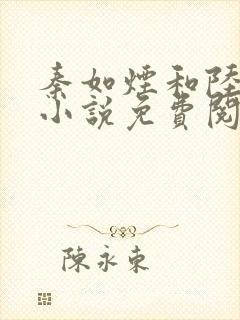 秦如煙和陸
小說免費閱
陳永東